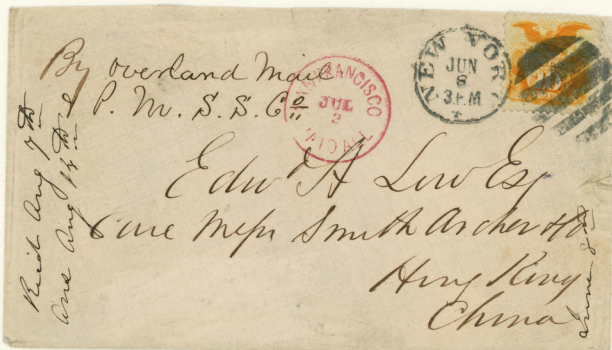 By overland Mail
P. M. S. S. Co
SAN FRANCISCO
JUL
2
PAID ALL
NEW YORK
JUN
8
3 P.M
10
Edw H Low Esq
Care Mess Smith Archer & Co
Hong Kong
China
Recd Aug 7th
Ans Aug 14th
June 8